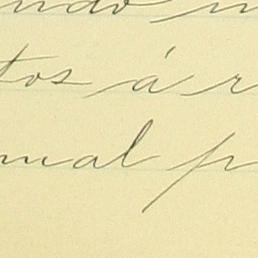 ndo
tos á r
mal p